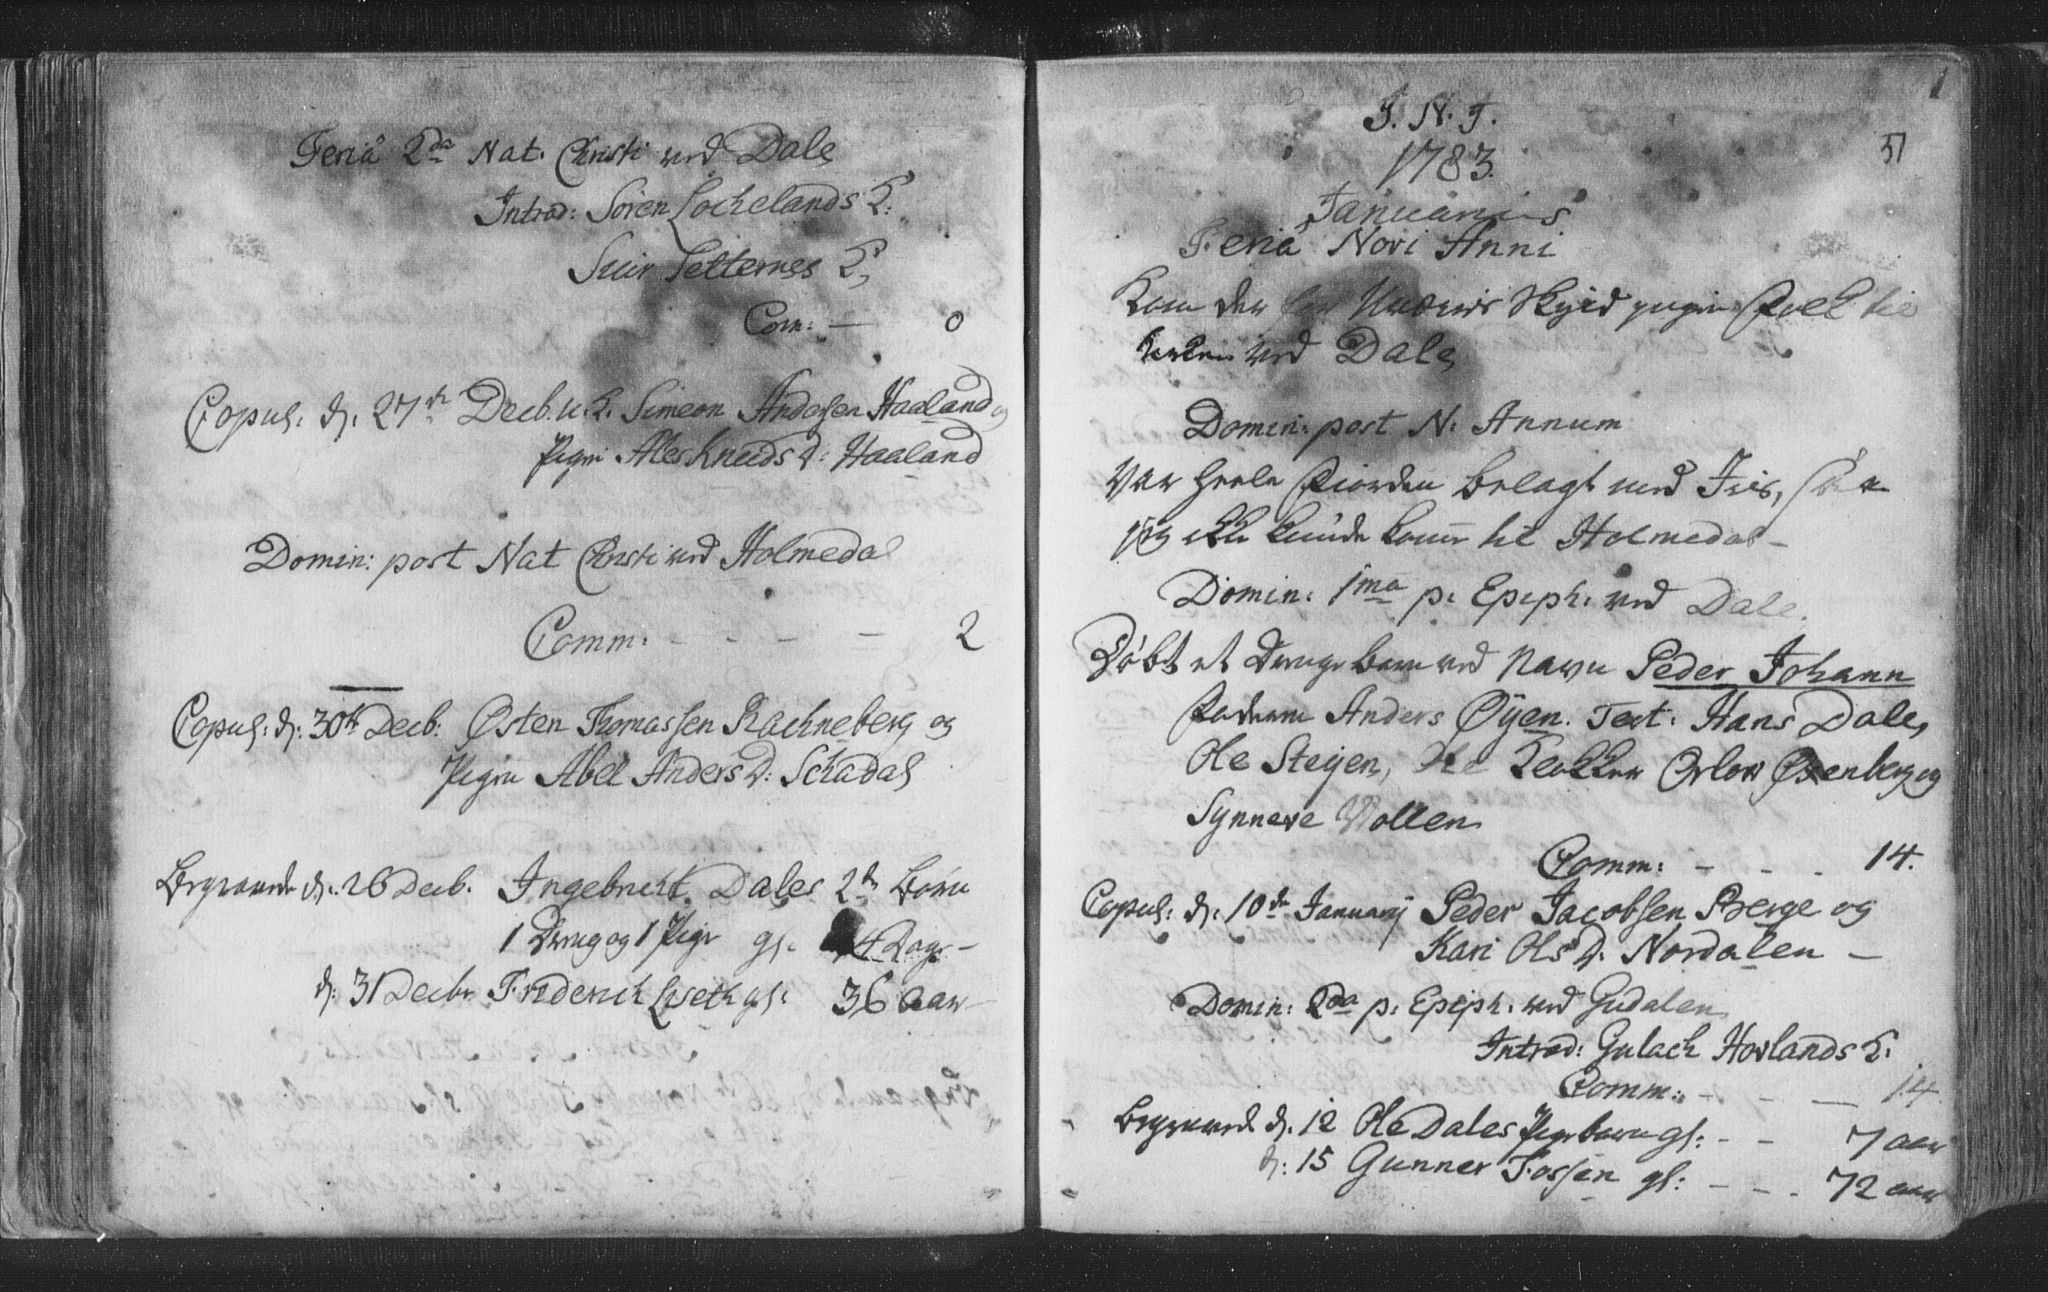 Feriâ 2da Nat. Christi ved Dale
Introd: Sören Lochelands K:
Siur Setternes K:
Com: — 0
Copul. d. 27de Decb. u. K. Simeon Andersen Haaland og
Pigen Ales Knuds D: Haaland
Domin: post Nat Christi ved Holmedal
Comm: - - - - 2
Copul: d: 30te Decb: Østen Thomassen Rachneberg og
Pigen Abel Anders D: Schadal
Begravede d. 26 Decb. Ingebricht Dales 2de Børn
1 Dreng og 1 Pige gl. 4 Dage -
d: 31 Decbr Friderich Lseth gl: 36 aar
51
J. N. J.
1783.
Januarius
Feriâ Novi Anni
Kom der for Uveirs Skyld ingen Folk til
Kirken ved Dale
Domin: post N: Annum
Var heele Fiorden belagt med Iis, saa
jeg ikke kunde komme til Holmedal -
Domin: 1ma p. Epiph: ved Dale.
Døbt et Drengebarn ved Navn Peder Johann
Faderen Anders Øyen. Test: Hans Dale,
Ole Steyen, Ole Klokker Orlov Øxenberg og
Synneve Wollen
Comm: - - - 14.
Copul: d: 10de Januarij Peder Jacobsen Berge og
Kari Ols D. Nordalen —
Domin: 2da p: Epiph: ved Gudalen
Introd: Gulach Hovlands K:
Comm: - - — 14.
Begravede d. 12 Ole Dales Pigebarn gl: - - 7 aar
d: 15 Gunner Fossen gl: - - . 72 aar